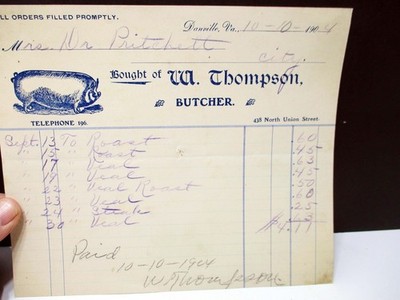 LL ORDERS FILLED PROMPTLY.
Danville, Va., 10-10-1904
Mrs. Dr Pritchett
City.
Bought of W. Thompson,
BUTCHER.
TELEPHONE 196.
438 North Union Street.
Sept. 13 To Roast .60
" 15 " Roast .45
" 17 " Veal .63
" 19 " Veal .45
" 22 " Veal Roast .50
" 23 " Veal .60
" 24 " Steak .25
" 30 " Veal .63
$4.11
Paid
10-10-1904
W. Thompson.